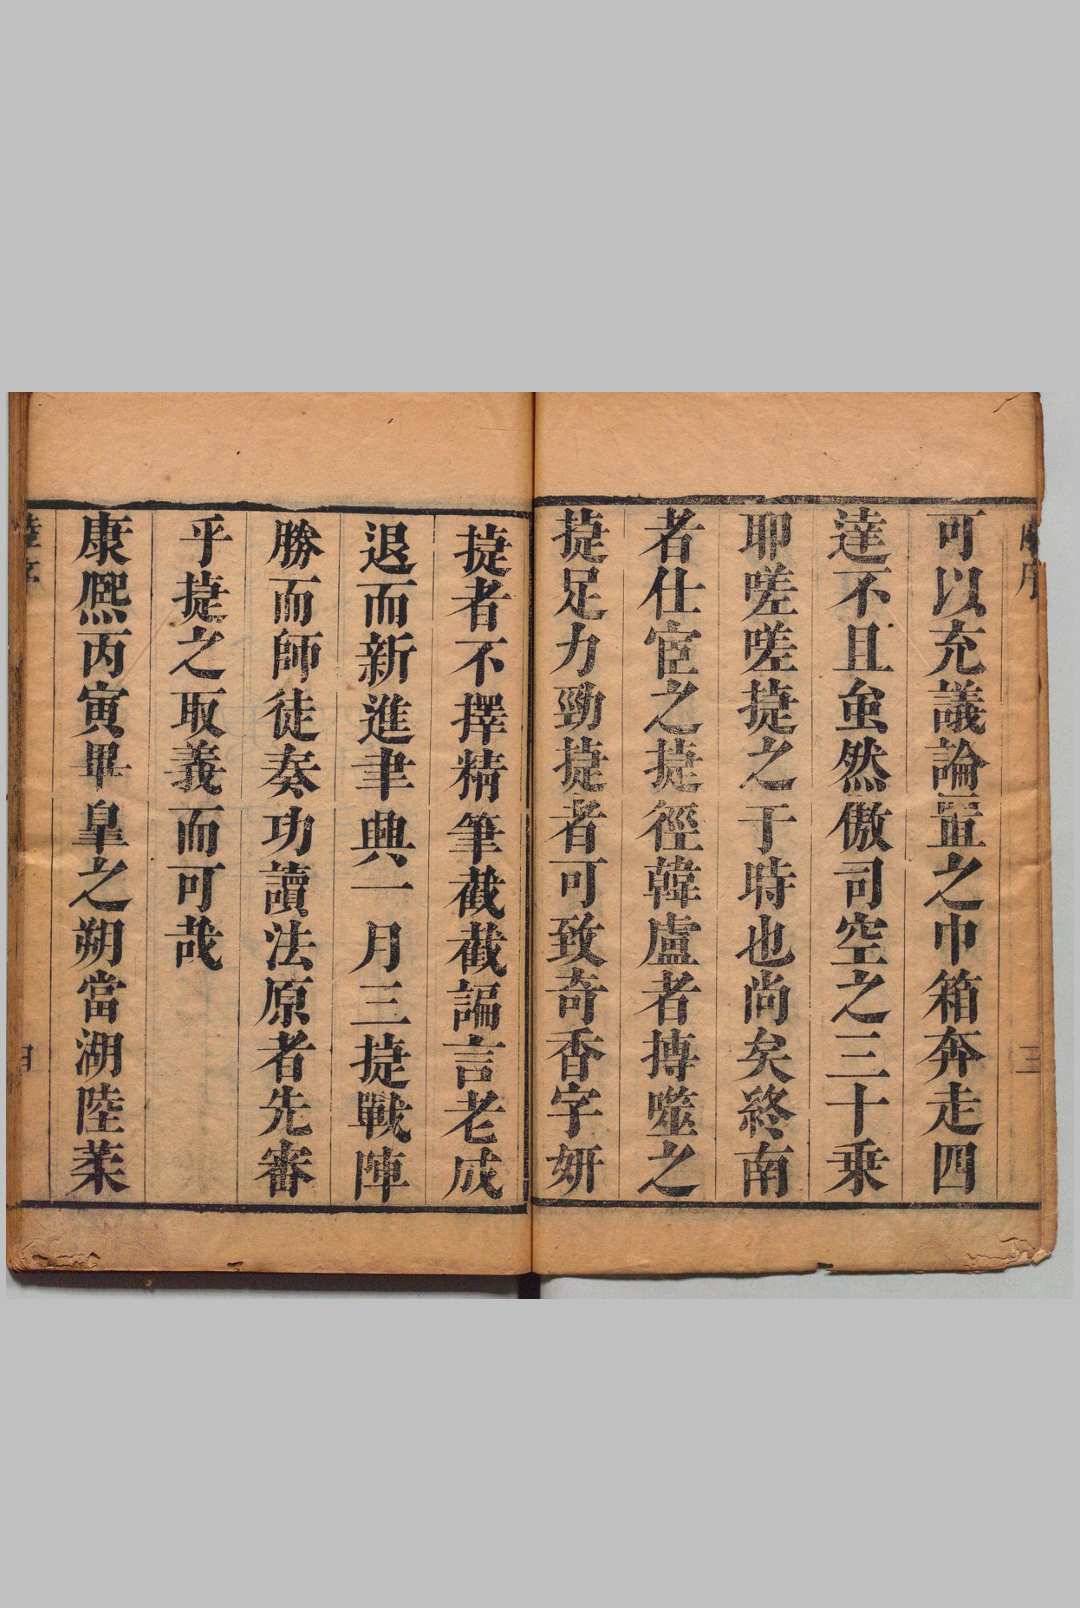 陸序
三
可以充議論置之巾箱奔走四
達不且䖝然傲司空之三十乗
耶嗟嗟捷之于時也尚矣終南
者仕宦之捷徑韓盧者摶噬之
捷足力勁捷者可致奇香字妍
捷者不擇精筆截截諞言老成
退而新進聿興一月三捷戰陣
勝而師徒奏功讀法原者先審
乎捷之取義而可哉
康熙丙寅畢臯之朔當湖陸葇
陸序